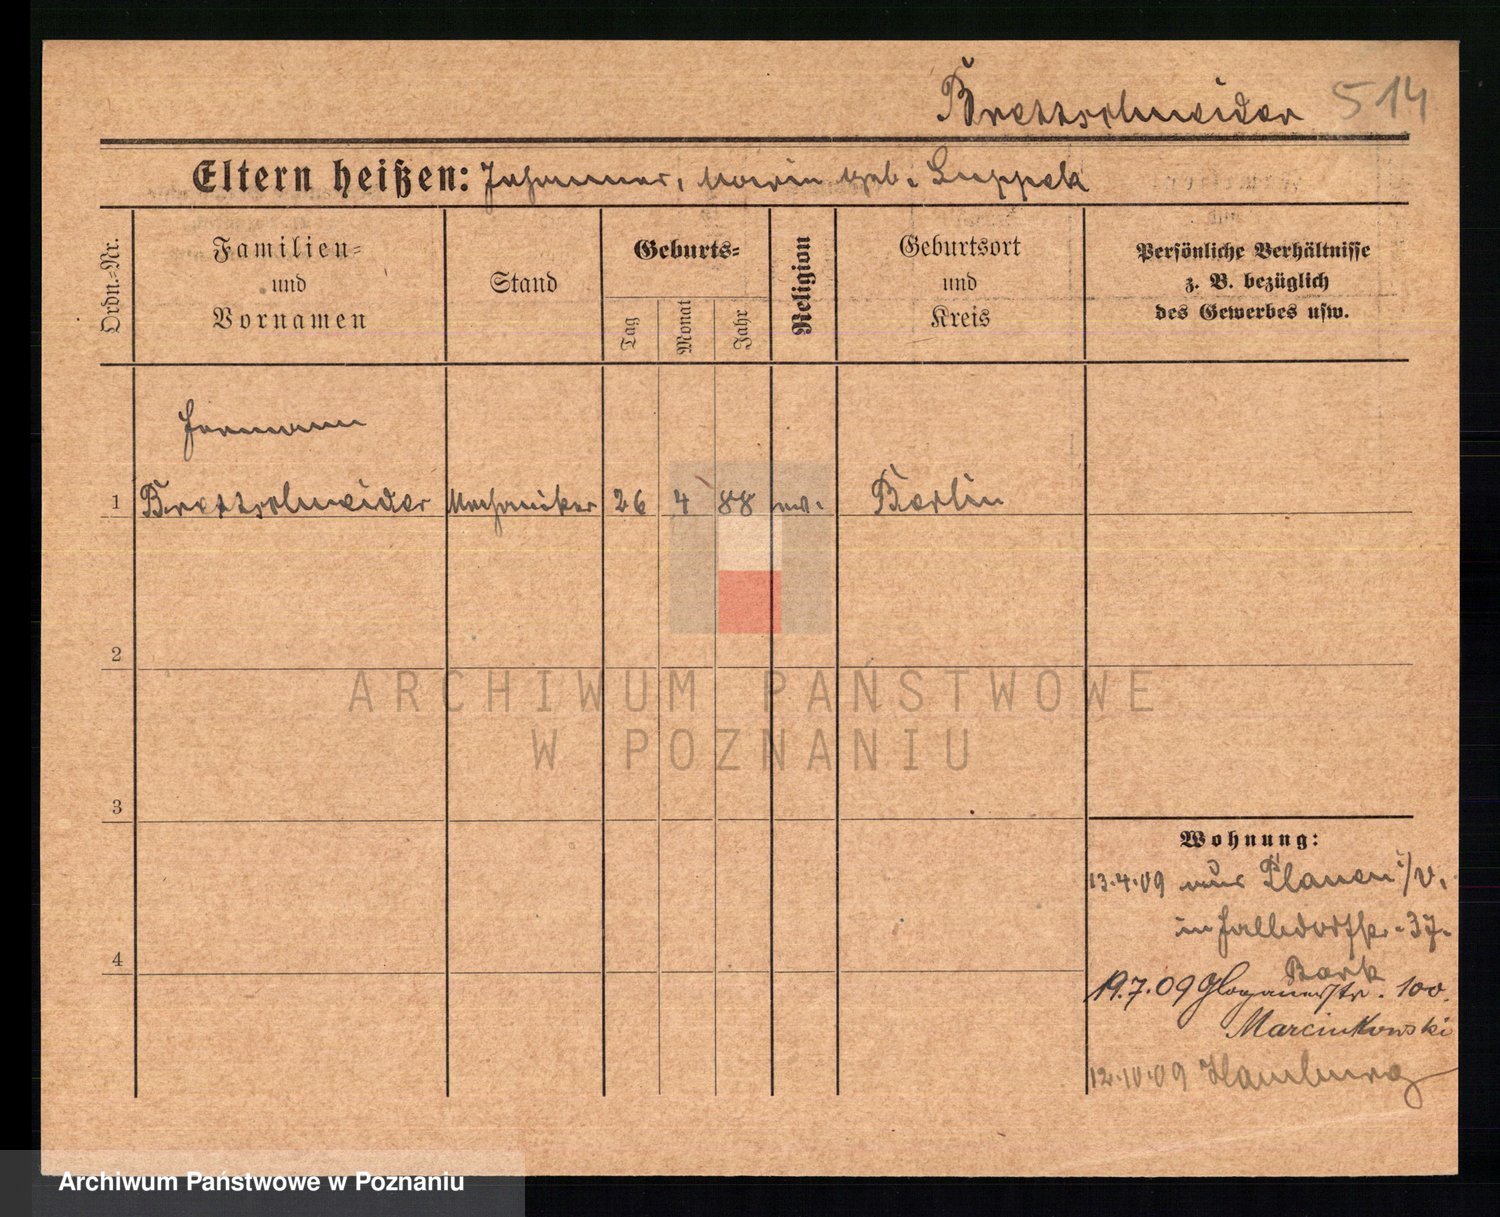 Brettschneider 514
Eltern heißen: Johannes, Marie geb. Luppek
Ordn.-Nr.
Familien-
und
Vornamen
Stand
Geburts-
Tag
Monat
Jahr
Religion
Geburtsort
und
Kreis
Persönliche Verhältnisse
z. B. bezüglich
des Gewerbes usw.
Hermann
1 Brettschneider Mechaniker 26 4 88 ev. Berlin
2
3
4
Wohnung:
13.4.09 aus Plauen i/V.
37
Bark
19.7.09 Glogauerstr. 100
Marcinkowski
12.10.09 Hamburg
ARCHIWUM PAŃSTWOWE
W POZNANIU
Archiwum Państwowe w Poznaniu